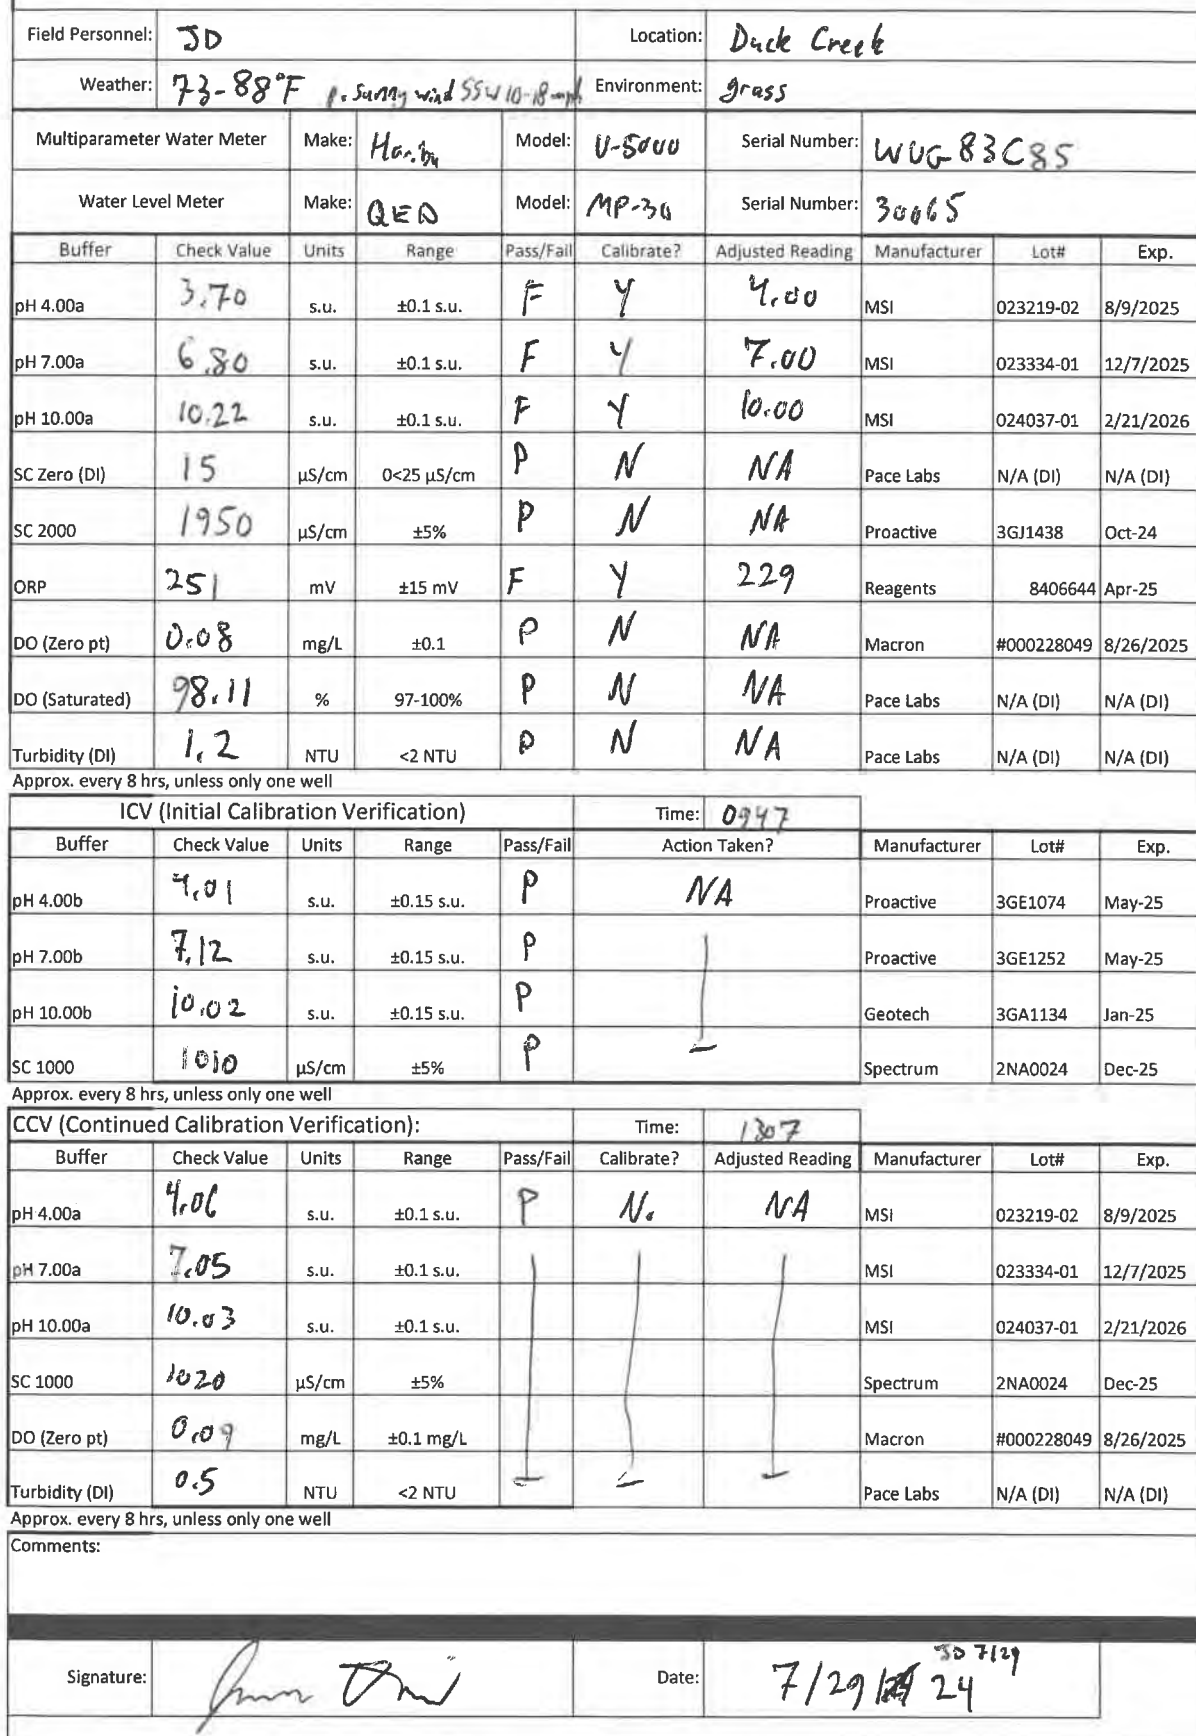 Field Personnel: JD Location: Duck Creek
Weather: 73-88°F p. sunny wind SSW 10-18 mph Environment: grass
Multiparameter Water Meter Make: Horiba Model: U-5000 Serial Number: WUG83C85
Water Level Meter Make: QED Model: MP-30 Serial Number: 30065
Buffer Check Value Units Range Pass/Fail Calibrate? Adjusted Reading Manufacturer Lot# Exp.
pH 4.00a 3.70 s.u. ±0.1 s.u. F Y 4.00 MSI 023219-02 8/9/2025
pH 7.00a 6.80 s.u. ±0.1 s.u. F Y 7.00 MSI 023334-01 12/7/2025
pH 10.00a 10.22 s.u. ±0.1 s.u. F Y 10.00 MSI 024037-01 2/21/2026
SC Zero (DI) 15 µS/cm 0<25 µS/cm P N NA Pace Labs N/A (DI) N/A (DI)
SC 2000 1950 µS/cm ±5% P N NA Proactive 3GJ1438 Oct-24
ORP 251 mV ±15 mV F Y 229 Reagents 8406644 Apr-25
DO (Zero pt) 0.08 mg/L ±0.1 P N NA Macron #000228049 8/26/2025
DO (Saturated) 98.11 % 97-100% P N NA Pace Labs N/A (DI) N/A (DI)
Turbidity (DI) 1.2 NTU <2 NTU P N NA Pace Labs N/A (DI) N/A (DI)
Approx. every 8 hrs, unless only one well
ICV (Initial Calibration Verification) Time: 0947
Buffer Check Value Units Range Pass/Fail Action Taken? Manufacturer Lot# Exp.
pH 4.00b 4.01 s.u. ±0.15 s.u. P NA Proactive 3GE1074 May-25
pH 7.00b 7.12 s.u. ±0.15 s.u. P Proactive 3GE1252 May-25
pH 10.00b 10.02 s.u. ±0.15 s.u. P Geotech 3GA1134 Jan-25
SC 1000 1010 µS/cm ±5% P Spectrum 2NA0024 Dec-25
Approx. every 8 hrs, unless only one well
CCV (Continued Calibration Verification): Time: 1307
Buffer Check Value Units Range Pass/Fail Calibrate? Adjusted Reading Manufacturer Lot# Exp.
pH 4.00a 4.06 s.u. ±0.1 s.u. P N. NA MSI 023219-02 8/9/2025
pH 7.00a 7.05 s.u. ±0.1 s.u. MSI 023334-01 12/7/2025
pH 10.00a 10.03 s.u. ±0.1 s.u. MSI 024037-01 2/21/2026
SC 1000 1020 µS/cm ±5% Spectrum 2NA0024 Dec-25
DO (Zero pt) 0.09 mg/L ±0.1 mg/L Macron #000228049 8/26/2025
Turbidity (DI) 0.5 NTU <2 NTU Pace Labs N/A (DI) N/A (DI)
Approx. every 8 hrs, unless only one well
Comments:
JD 7/29
Signature: Date: 7/29/ 24